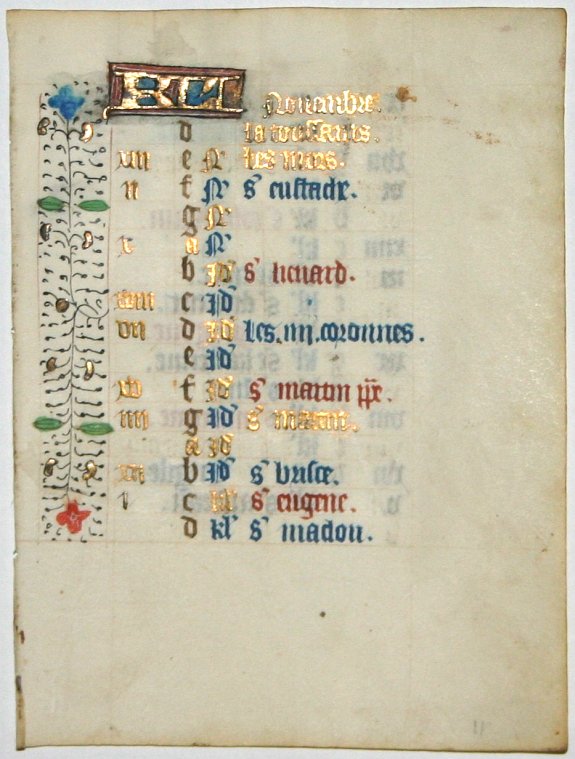 KL Nouembre.
d la toussains.
xiii e N les mors.
ii f N s eustace.
g N
x a N
b s lienard.
xviii c id
vii d id les .iiii. coronnes.
e id
xv f id s martin
iiii g id s martin.
a id
xii b id s brisce.
i c kl s eugene.
d kl s maclou.